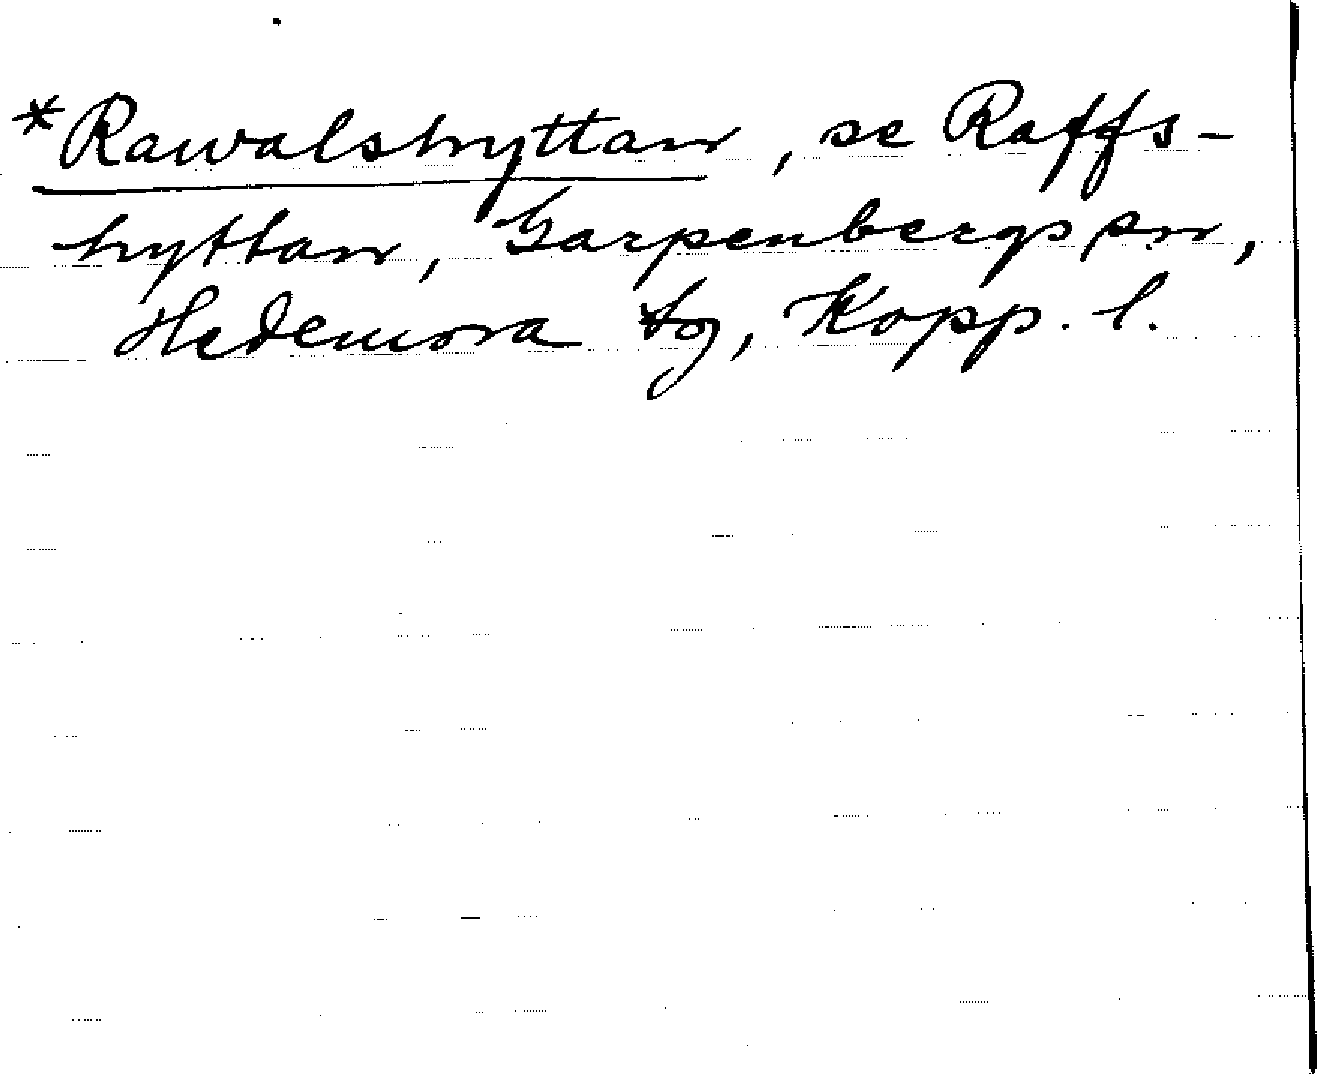 *Rawalshyttan, se Raffs-
hyttan, Garpenbergs sn,
Hedemora tg, Kopp. l.